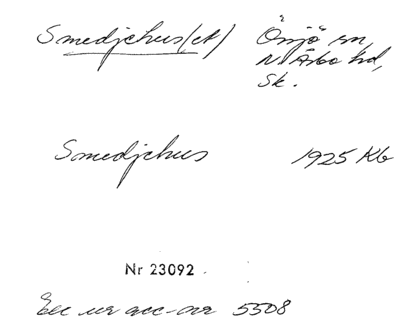 Smedjehus(et) Önnjö sn,
N. Åsbo hd,
Sk.
Smedjehus 1925 Kb
Nr 23092
Exc ur acc-nr 5508